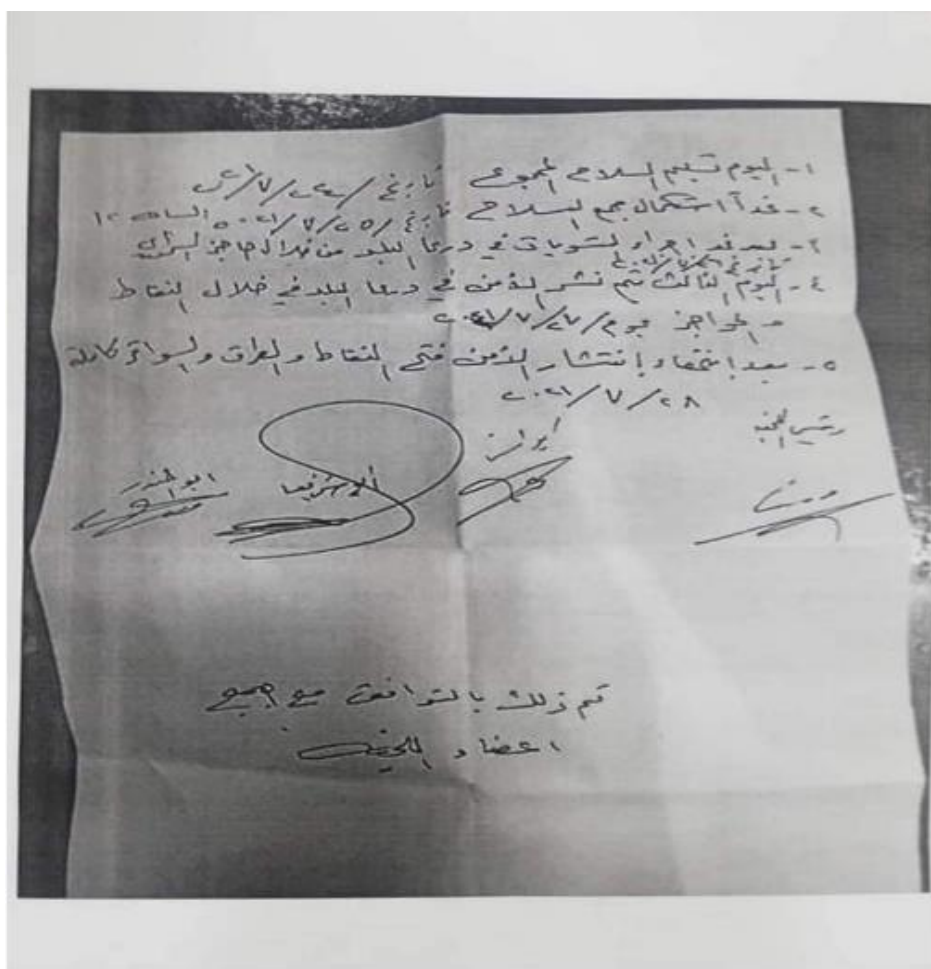 ١- اليوم تسليم السلاح المجموع تاريخ / ٢٤/٧/٢٠٢١
٢- غداً استكمال جمع السلاح تاريخ ٢٥/٧/٢٠٢١ الساعة ١٢
٣- بعد غد اجراء التسويات في درعا البلد من خلال حاجز السرايا
تاريخ
٤- اليوم الثالث يتم نشر الأمن في درعا البلد في خلال النقاط
والحواجز يوم / ٢٧/٧/٢٠٢١
٥- بعد انتهاء إنتشار الأمن فتح النقاط والطرق والسواتر كاملة
٢٨/٧/٢٠٢١
رئيس اللجنة
ابو منذر
تم ذلك بالتوافق مع جميع
اعضاء اللجنة